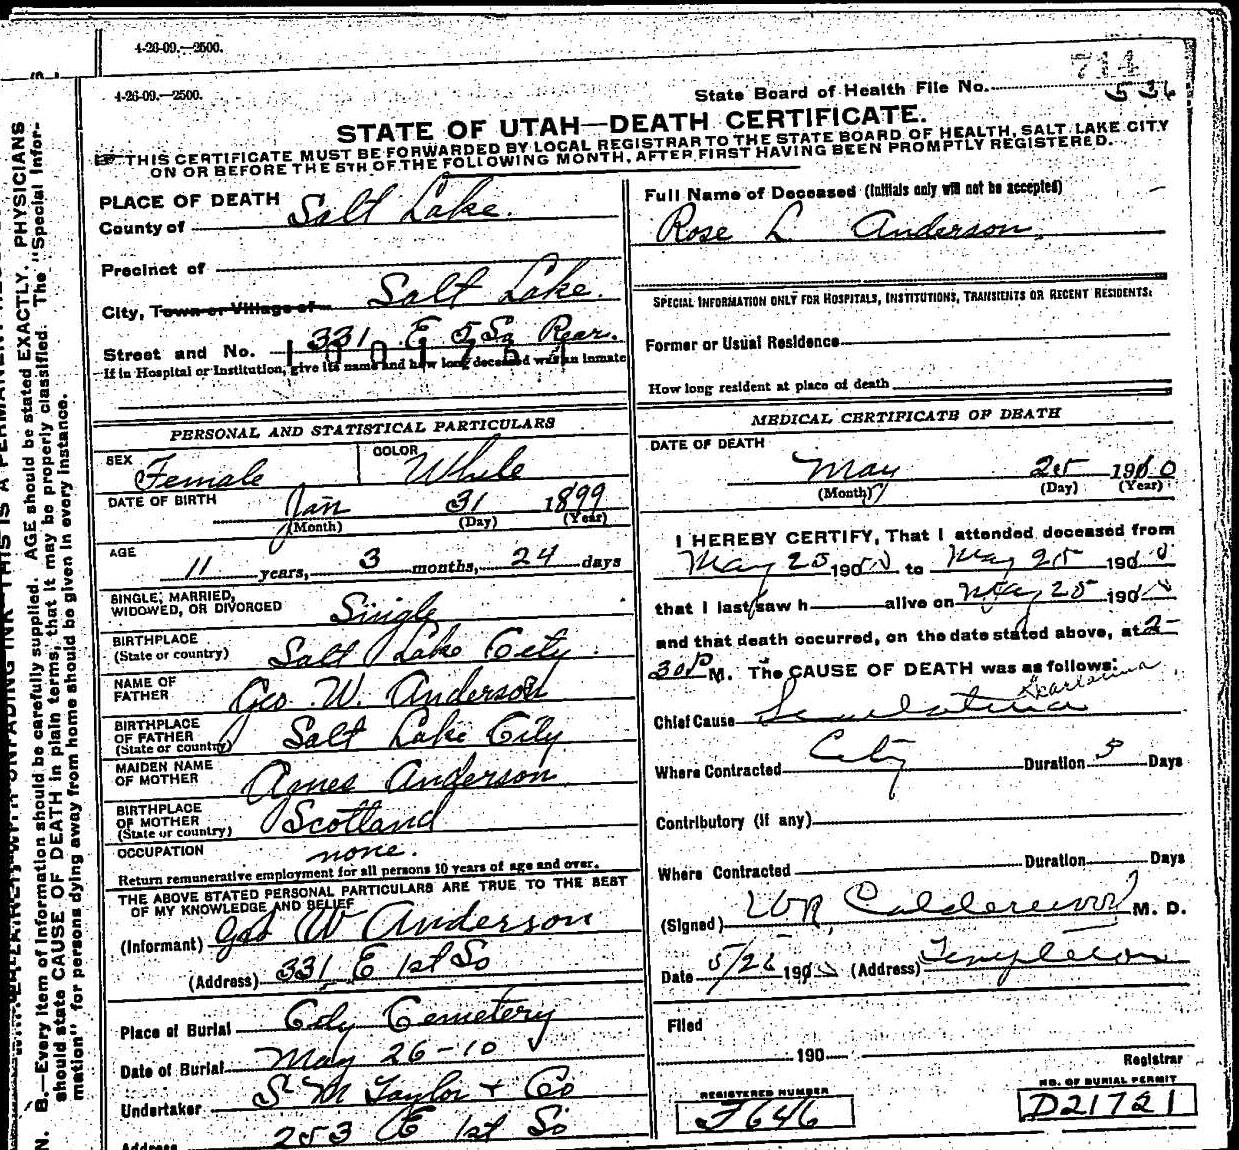 4-26-09.—2500.
4-26-09.—2500.
714
State Board of Health File No. 536
STATE OF UTAH—DEATH CERTIFICATE.
THIS CERTIFICATE MUST BE FORWARDED BY LOCAL REGISTRAR TO THE STATE BOARD OF HEALTH, SALT LAKE CITY
ON OR BEFORE THE 5TH OF THE FOLLOWING MONTH, AFTER FIRST HAVING BEEN PROMPTLY REGISTERED.
PLACE OF DEATH
County of Salt Lake.
Precinct of
City, Town or Village of Salt Lake.
Street and No. 331 E 5 So Rear.
If in Hospital or Institution, give its name and how long deceased was an inmate
PERSONAL AND STATISTICAL PARTICULARS
SEX Female COLOR White
DATE OF BIRTH Jan 31 1899
(Month) (Day) (Year)
AGE 11 years, 3 months, 24 days
SINGLE, MARRIED,
WIDOWED, OR DIVORCED Single
BIRTHPLACE
(State or country) Salt Lake City.
NAME OF
FATHER Geo. W. Anderson
BIRTHPLACE
OF FATHER
(State or country) Salt Lake City
MAIDEN NAME
OF MOTHER Agnes Anderson
BIRTHPLACE
OF MOTHER
(State or country) Scotland
OCCUPATION none.
Return remunerative employment for all persons 10 years of age and over.
THE ABOVE STATED PERSONAL PARTICULARS ARE TRUE TO THE BEST
OF MY KNOWLEDGE AND BELIEF
(Informant) Geo W Anderson
(Address) 331 E 1st So
Place of Burial City Cemetery
Date of Burial May 26-10
Undertaker S M Taylor + Co
Address 253 E 1st So
Full Name of Deceased (Initials only will not be accepted)
Rose L Anderson
SPECIAL INFORMATION ONLY FOR HOSPITALS, INSTITUTIONS, TRANSIENTS OR RECENT RESIDENTS:
Former or Usual Residence
How long resident at place of death
MEDICAL CERTIFICATE OF DEATH
DATE OF DEATH
May 25 1910
(Month) (Day) (Year)
I HEREBY CERTIFY, That I attended deceased from
May 25 190 to May 25 190
that I last saw h alive on May 25 190
and that death occurred, on the date stated above, at 2-
30 P M. The CAUSE OF DEATH was as follows:
Scarlatina
Chief Cause Scarlatina
Where Contracted City Duration 5 Days
Contributory (if any)
Where Contracted Duration Days
(Signed) Calderwood M. D.
Date 5/26 190 (Address) Templeton
Filed
190
Registrar
REGISTERED NUMBER
J646
NO. OF BURIAL PERMIT
D21721
N. B.—Every item of information should be carefully supplied. AGE should be stated EXACTLY. PHYSICIANS
should state CAUSE OF DEATH in plain terms, that it may be properly classified. The "Special Infor-
mation" for persons dying away from home should be given in every instance.